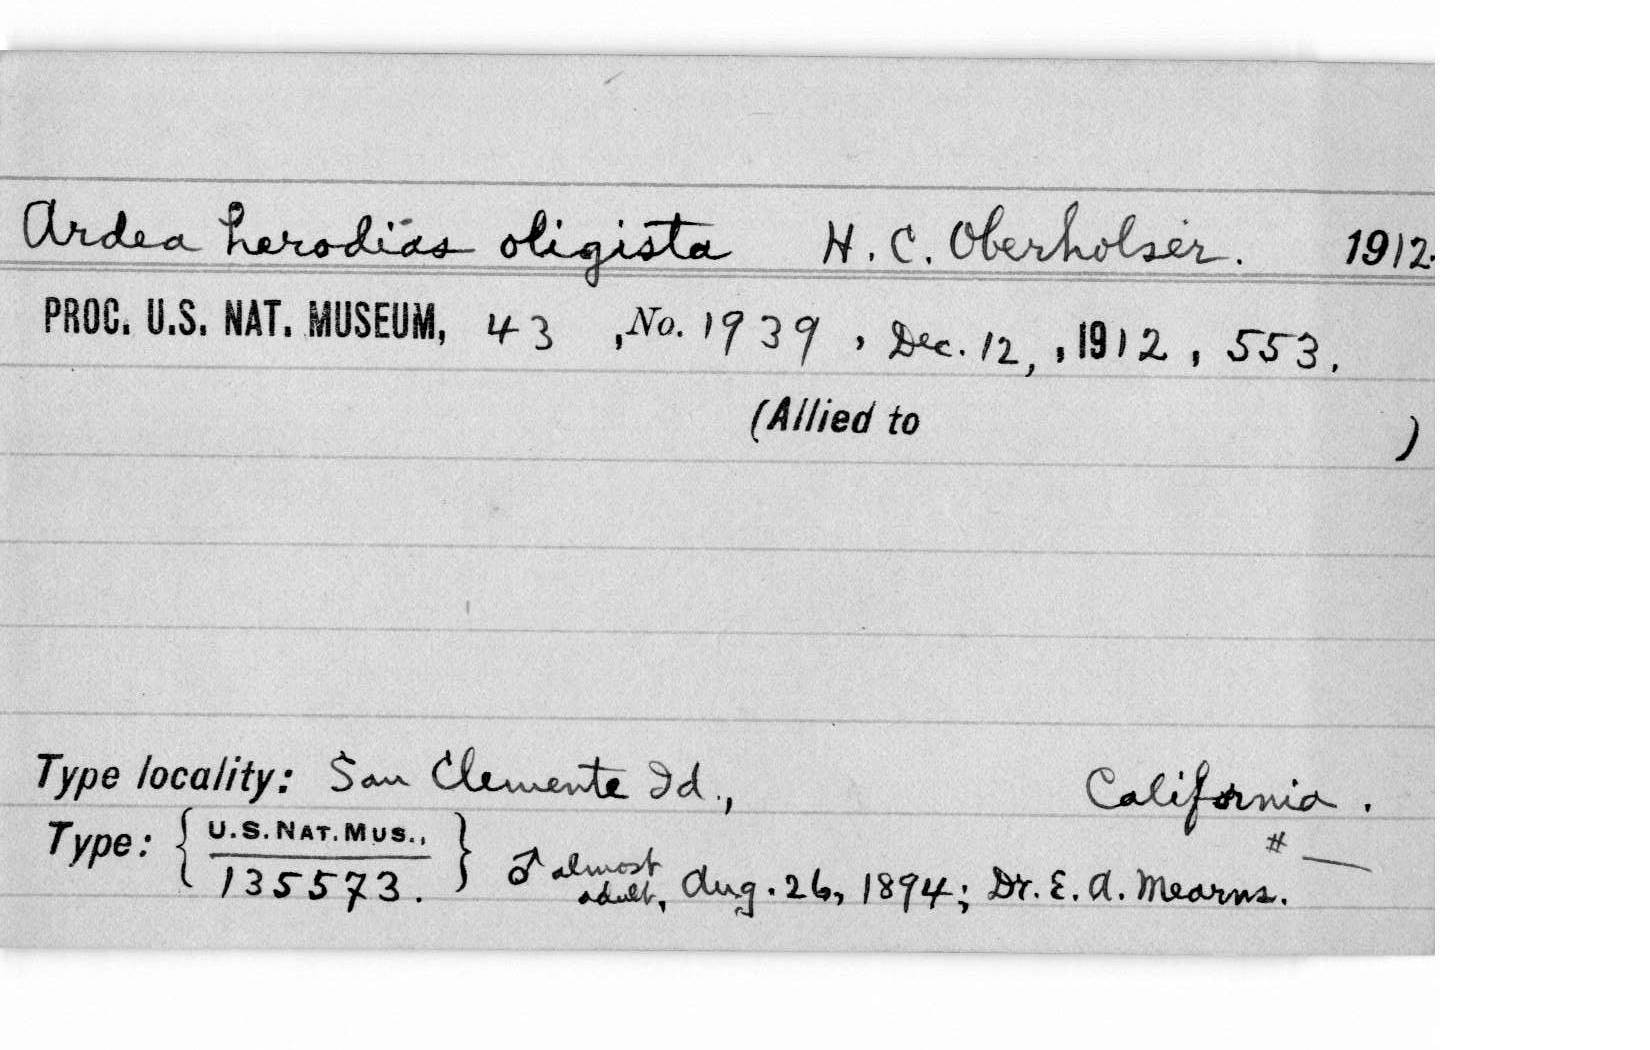 Ardea herodias oligista H. C. Oberholser. 1912.
PROC. U.S. NAT. MUSEUM, 43 , No. 1939 , Dec. 12, , 1912 , 553.
(Allied to )
Type locality: San Clemente Id., California .
Type: { U.S. NAT. MUS., 135573. } ♂ almost adult, Aug. 26, 1894; Dr. E. A. Mearns. # —